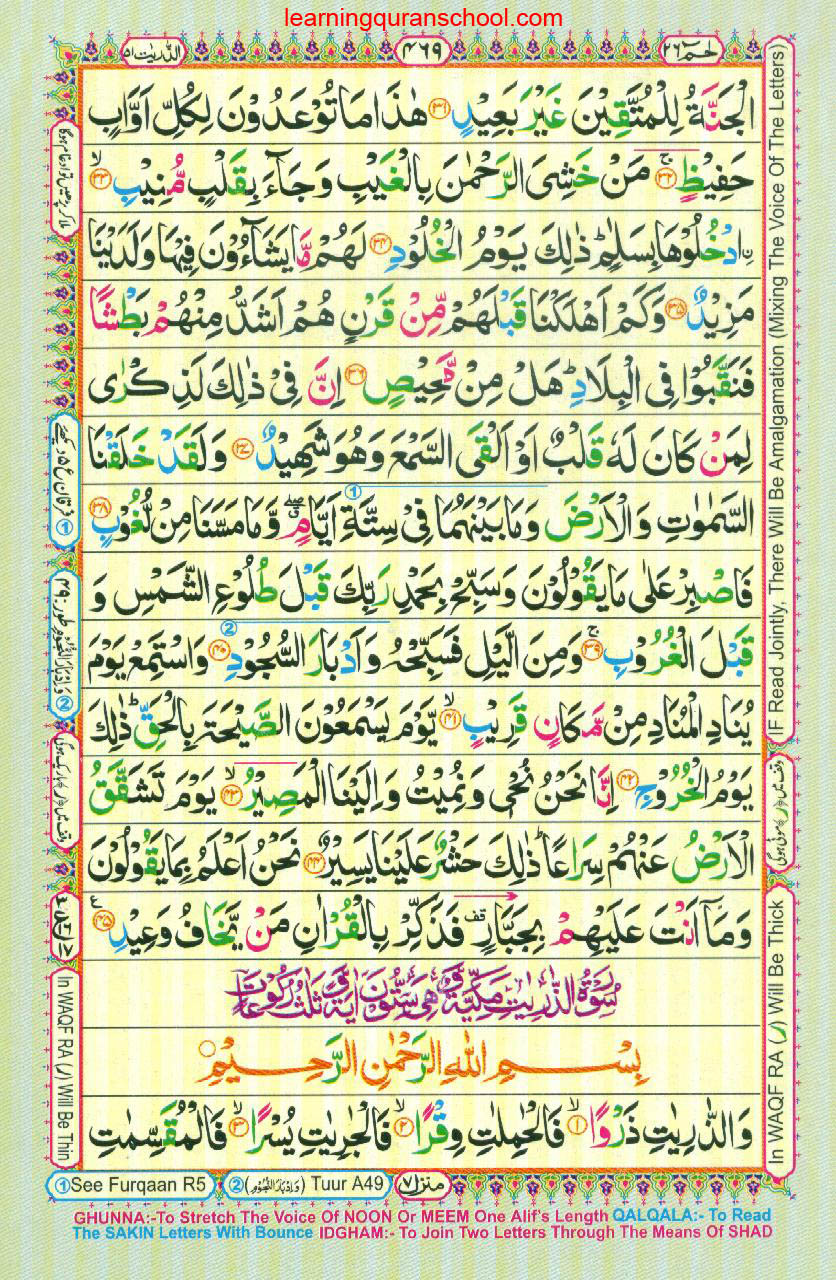 learningquranschool.com
الذريت ٥١
٤٦٩
حٰم ٢٦
الْجَنَّةُ لِلْمُتَّقِيْنَ غَيْرَ بَعِيْدٍ ﴿٣١﴾ هٰذَا مَا تُوْعَدُوْنَ لِكُلِّ اَوَّابٍ
حَفِيْظٍ ﴿٣٢﴾ ج مَنْ خَشِىَ الرَّحْمٰنَ بِالْغَيْبِ وَجَآءَ بِقَلْبٍ مُّنِيْبِ ﴿٣٣﴾ ۙ
ِ۟ادْخُلُوْهَا بِسَلٰمٍ ؕ ذٰلِكَ يَوْمُ الْخُلُوْدِ ﴿٣٤﴾ لَهُمْ مَّا يَشَآءُوْنَ فِيْهَا وَلَدَيْنَا
مَزِيْدٌ ﴿٣٥﴾ وَكَمْ اَهْلَكْنَا قَبْلَهُمْ مِّنْ قَرْنٍ هُمْ اَشَدُّ مِنْهُمْ بَطْشًا
فَنَقَّبُوْا فِى الْبِلَادِ ؕ هَلْ مِنْ مَّحِيْصٍ ﴿٣٦﴾ اِنَّ فِىْ ذٰلِكَ لَذِكْرٰى
لِمَنْ كَانَ لَهٗ قَلْبٌ اَوْ اَلْقَى السَّمْعَ وَهُوَ شَهِيْدٌ ﴿٣٧﴾ وَلَقَدْ خَلَقْنَا
السَّمٰوٰتِ وَالْاَرْضَ وَمَا بَيْنَهُمَا فِىْ سِتَّةِ اَيَّامٍ ۖق وَّمَا مَسَّنَا مِنْ لُّغُوْبٍ ﴿٣٨﴾
فَاصْبِرْ عَلٰى مَا يَقُوْلُوْنَ وَسَبِّحْ بِحَمْدِ رَبِّكَ قَبْلَ طُلُوْعِ الشَّمْسِ وَ
قَبْلَ الْغُرُوْبِ ﴿٣٩﴾ ج وَمِنَ الَّيْلِ فَسَبِّحْهُ وَاَدْبَارَ السُّجُوْدِ ﴿٤٠﴾ وَاسْتَمِعْ يَوْمَ
يُنَادِ الْمُنَادِ مِنْ مَّكَانٍ قَرِيْبٍ ﴿٤١﴾ ۙ يَّوْمَ يَسْمَعُوْنَ الصَّيْحَةَ بِالْحَقِّ ؕ ذٰلِكَ
يَوْمُ الْخُرُوْجِ ﴿٤٢﴾ اِنَّا نَحْنُ نُحْىٖ وَنُمِيْتُ وَاِلَيْنَا الْمَصِيْرُ ﴿٤٣﴾ ۙ يَوْمَ تَشَقَّقُ
الْاَرْضُ عَنْهُمْ سِرَاعًا ؕ ذٰلِكَ حَشْرٌ عَلَيْنَا يَسِيْرٌ ﴿٤٤﴾ نَحْنُ اَعْلَمُ بِمَا يَقُوْلُوْنَ
وَمَآ اَنْتَ عَلَيْهِمْ بِجَبَّارٍ قف فَذَكِّرْ بِالْقُرْاٰنِ مَنْ يَّخَافُ وَعِيْدِ ﴿٤٥﴾ ع
سُوْرَةُ الذّٰرِيٰتِ مَكِّيَّةٌ وَّهِىَ سِتُّوْنَ اٰيَةً وَّثَلٰثُ رُكُوْعَاتٍ
بِسْمِ اللّٰهِ الرَّحْمٰنِ الرَّحِيْمِ
وَالذّٰرِيٰتِ ذَرْوًا ﴿١﴾ ۙ فَالْحٰمِلٰتِ وِقْرًا ﴿٢﴾ ۙ فَالْجٰرِيٰتِ يُسْرًا ﴿٣﴾ ۙ فَالْمُقَسِّمٰتِ
IF Read Jointly, There Will Be Amalgamation (Mixing The Voice Of The Letters)
وقف میں (ر) موٹی ہوگی
In WAQF RA (ر) Will Be Thick
ملا کر پڑھیں تو ادغام ہوگا
① فرقان ع ۵ دیکھئے
② وَاِدْبَارَ النُّجُوْمِ طور: ۴۹
وقف میں (ر) باریک ہوگی
In WAQF RA (ر) Will Be Thin
① See Furqaan R5
② (وَاِدْبَارَ النُّجُوْمِ) Tuur A49
منزل ٧
GHUNNA:-To Stretch The Voice Of NOON Or MEEM One Alif's Length QALQALA:- To Read
The SAKIN Letters With Bounce IDGHAM:- To Join Two Letters Through The Means Of SHAD